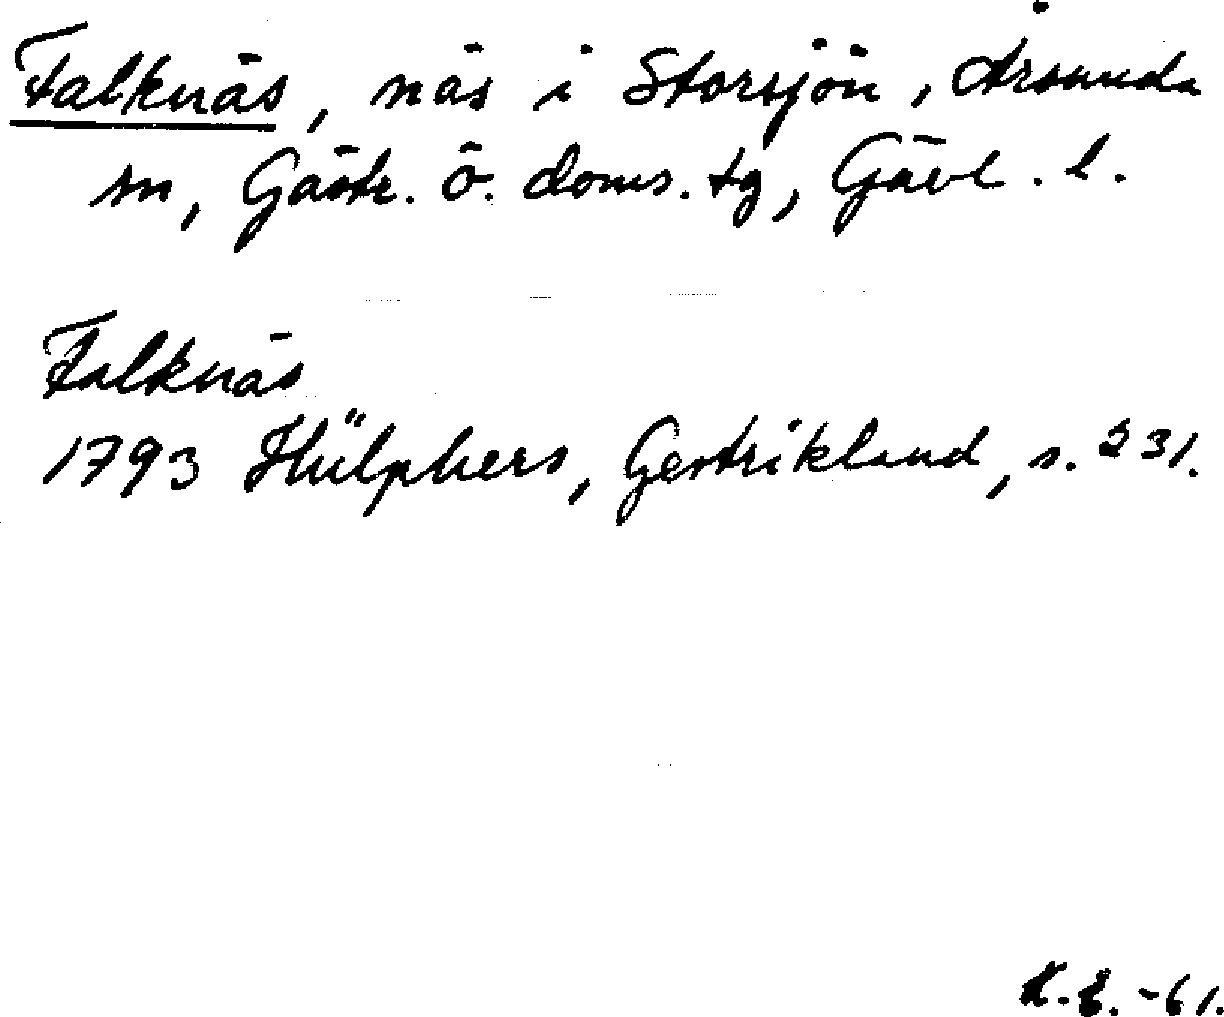 Falknäs, näs i Storsjön, Årsunda
sn, Gästr. ö. doms. tg, Gävl. l.
Falknäs
1793 Hülphers, Gestrikland, s. 231.
K.E. -61.